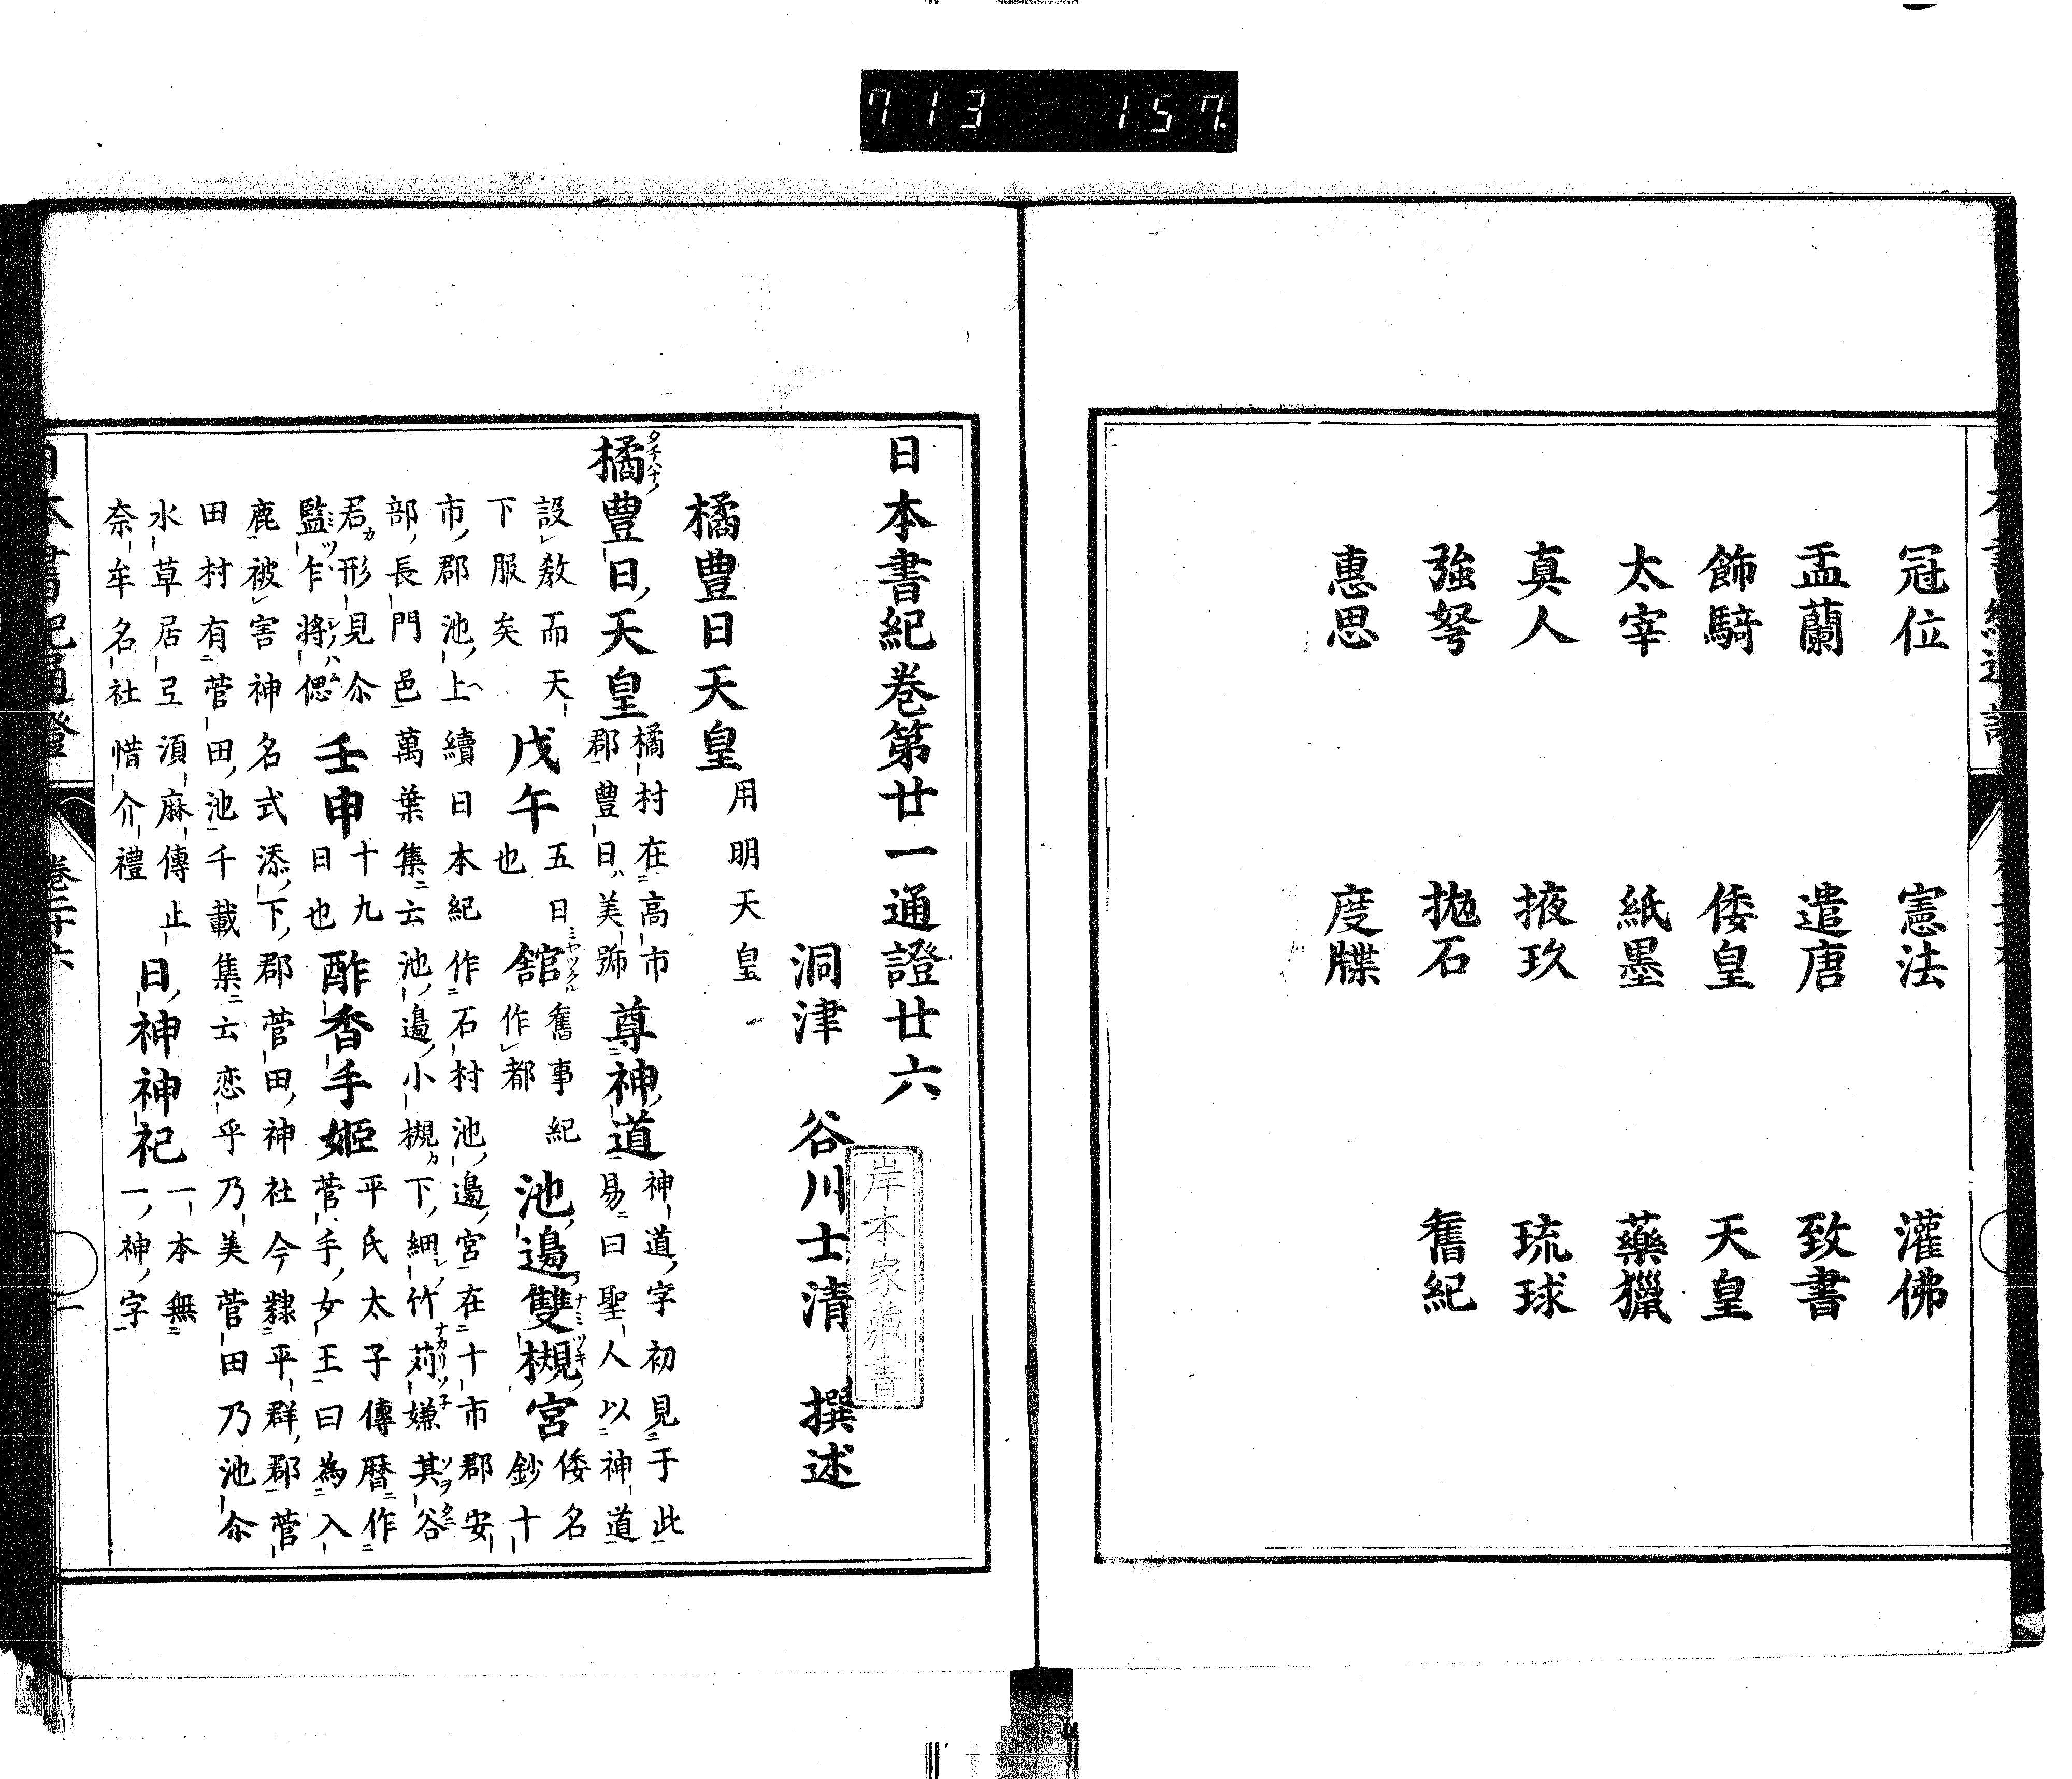 冠位 憲法 灌佛
盂蘭 遣唐 致書
飾騎 倭皇 天皇
太宰 紙墨 藥獵
真人 掖玖 琉球
強弩 拋石 舊紀
惠思 度牒
日本書紀卷第廿一通證廿六
洞津 谷川士清 撰述
岸本家藏書
橘豊日天皇 用明天皇
橘豊日天皇 橘村在高市郡豊日美號 尊神道 神道字初見于此易曰聖人以神道
設敎而天下服矣 戊午 五日也 館 舊事紀作都 池邊雙槻宮 倭名鈔十
市郡池上續日本紀作石村池邊宮在十市郡安
部長門邑萬葉集云池邊小槻下細竹苅嫌其谷
君形見尒監乍將偲 壬申 十九日也 酢香手姬 平氏太子傳暦作菅手女王曰為入
鹿被害神名式添下郡菅田神社今隸平群郡菅
田村有菅田池千載集云恋乎乃美菅田乃池尒
水草居弖須麻傳止奈牟名社惜介禮 日神神祀 一本無一神字
日本書紀通證 卷二十六 一
713 157.